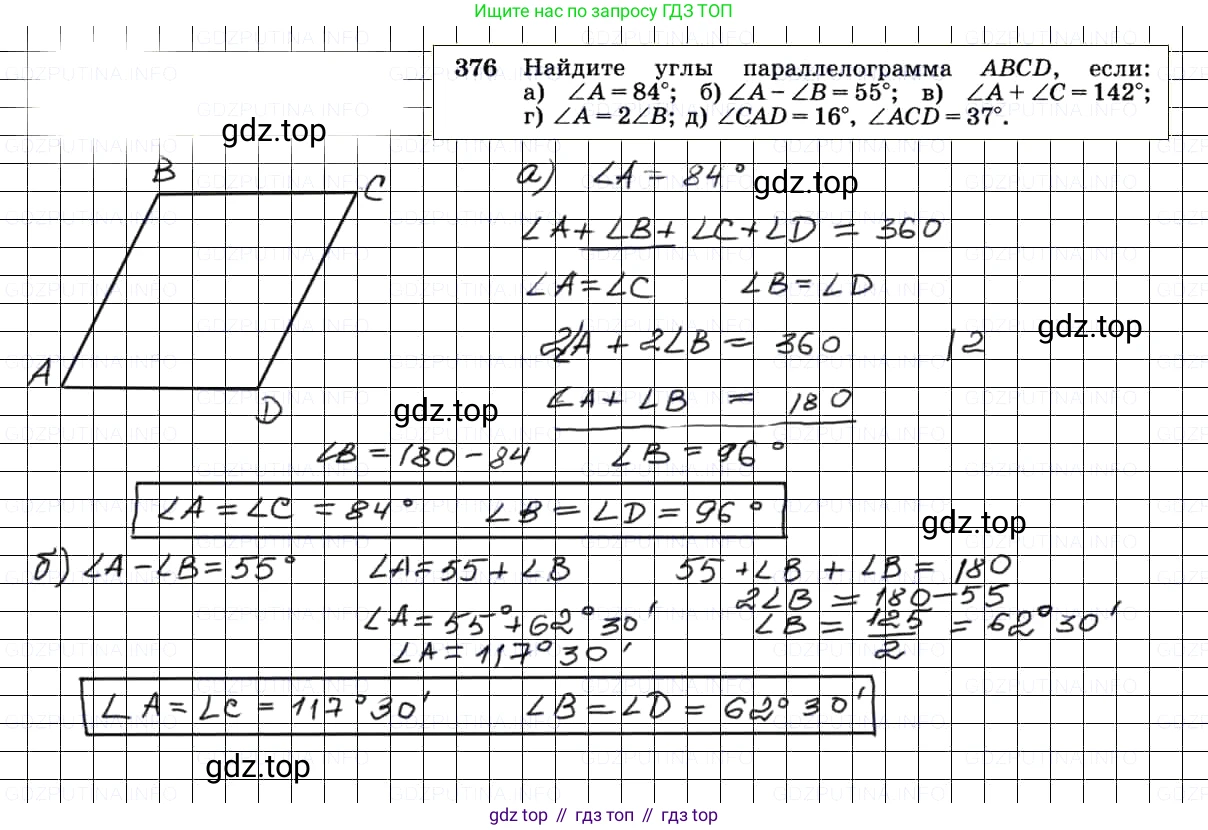 Ищите нас по запросу ГДЗ ТОП
376 Найдите углы параллелограмма ABCD, если:
а) ∠A = 84°; б) ∠A − ∠B = 55°; в) ∠A + ∠C = 142°;
г) ∠A = 2∠B; д) ∠CAD = 16°, ∠ACD = 37°.
gdz.top
B
C
A
D
а) ∠A = 84°
gdz.top
∠A + ∠B + ∠C + ∠D = 360
∠A = ∠C ∠B = ∠D
2∠A + 2∠B = 360 |2
gdz.top
∠A + ∠B = 180
gdz.top
∠B = 180 − 84 ∠B = 96°
∠A = ∠C = 84° ∠B = ∠D = 96°
gdz.top
б) ∠A − ∠B = 55° ∠A = 55 + ∠B 55 + ∠B + ∠B = 180
2∠B = 180 − 55
∠A = 55° + 62° 30′ ∠B = 125/2 = 62° 30′
∠A = 117° 30′
∠A = ∠C = 117° 30′ ∠B = ∠D = 62° 30′
gdz.top
gdz top // гдз топ // гдз top
GDZPUTINA.INFO